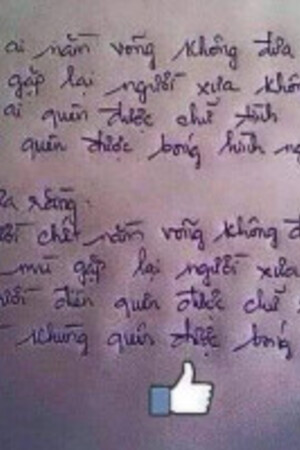 ai nằm võng không đưa
gặp lại người xưa khôn
ai quên được chữ tình
quên được bóng hình n
rằng:
chết nằm võng không đ
mù gặp lại người xưa
điên quên được chữ
khùng quên được bóng